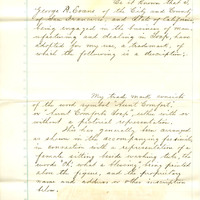 Be it known that I
George R. Evans of the City and County
of San Francisco, and State of California
being engaged in the business of man-
ufacturing and dealing in Soap, have
adopted for my use, a trademark, of
which the following is a description;
My trade mark consists
of the word symbol "Aunt Comfort,"
or "Aunt Comforts Soap," either with or
without a pictorial representation.
This has generally been arranged
as shown in the accompanying facsimile
in connection with a representation of a
female sitting beside washing tub, the
words "Oh, what a blessing," being printed
above the figure, and the proprietary
name and address or other inscription
below.